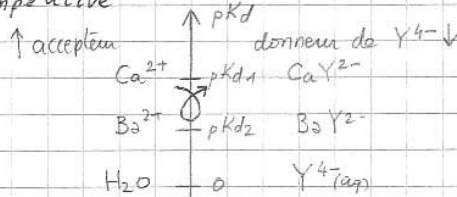 pKd
↑ accepteur donneur de Y⁴⁻ ↓
Ca²⁺ pKd₁ CaY²⁻
Ba²⁺ pKd₂ BaY²⁻
H₂O 0 Y⁴⁻(aq)